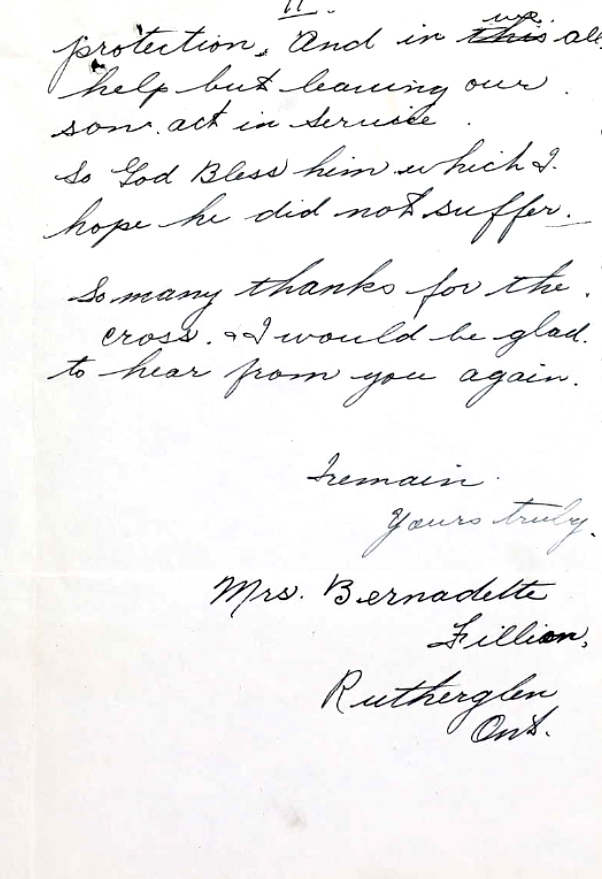 11.
protection. And in ~~this~~ we all
help but leaving our
son. act in service.
So God Bless him which I.
hope he did not suffer.
So many thanks for the.
cross. & I would be glad.
to hear from you again.
I remain.
Yours truly.
Mrs. Bernadette
Fillion,
Rutherglen
Ont.